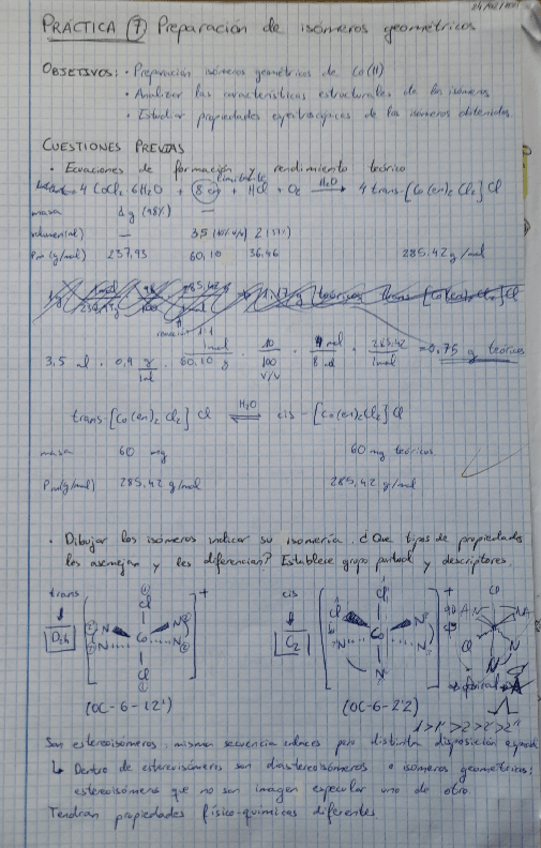 PRÁCTICA 7 Preparación de isómeros geométricos
OBJETIVOS: • Preparación isómeros geométricos de Co(III)
• Analizar las características estructurales de los isómeros
• Estudiar propiedades espectroscópicas de los isómeros obtenidos
CUESTIONES PREVIAS
• Ecuaciones de formación y rendimiento teórico
limitante
4 CoCl2 6H2O + 8 en + 4 HCl + O2 H2O → 4 trans-[Co(en)2 Cl2] Cl
masa 1 g (98%) —
volumen (ml) — 3,5 (10% v/v) 2 (37%)
Pm (g/mol) 237,93 60,10 36,46 285,42 g/mol
3,5 ml · 0,9 g/1ml · 1mol/60,10 g · 10/100 v/v · 4 mol/8 mol · 285,42/1mol = 0,75 g teóricos
trans-[Co(en)2 Cl2] Cl H2O ⇌ cis-[Co(en)2Cl2] Cl
masa 60 mg 60 mg teóricos
Pm(g/mol) 285,42 g/mol 285,42 g/mol
• Dibujar los isómeros indicar su isomería. ¿Que tipos de propiedades
los asemejan y les diferencian? Establece grupo puntual y descriptores.
trans cis
Cl Cl
N Co N Cl Co N
N N N N
Cl N
C2
(OC-6-12') (OC-6-22)
1>1'>2>2'>2''
Son estereoisómeros: misma secuencia enlaces pero distinta disposición espacial
↳ Dentro de estereoisómeros son diastereoisómeros o isómeros geométricos:
estereoisómeros que no son imagen especular uno de otro.
Tendran propiedades físico-químicas diferentes.